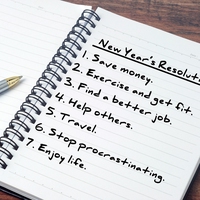 New Year's Resoluti
1. Save money.
2. Exercise and get fit.
3. Find a better job.
4. Help others.
5. Travel.
6. Stop procrastinating.
7. Enjoy life.